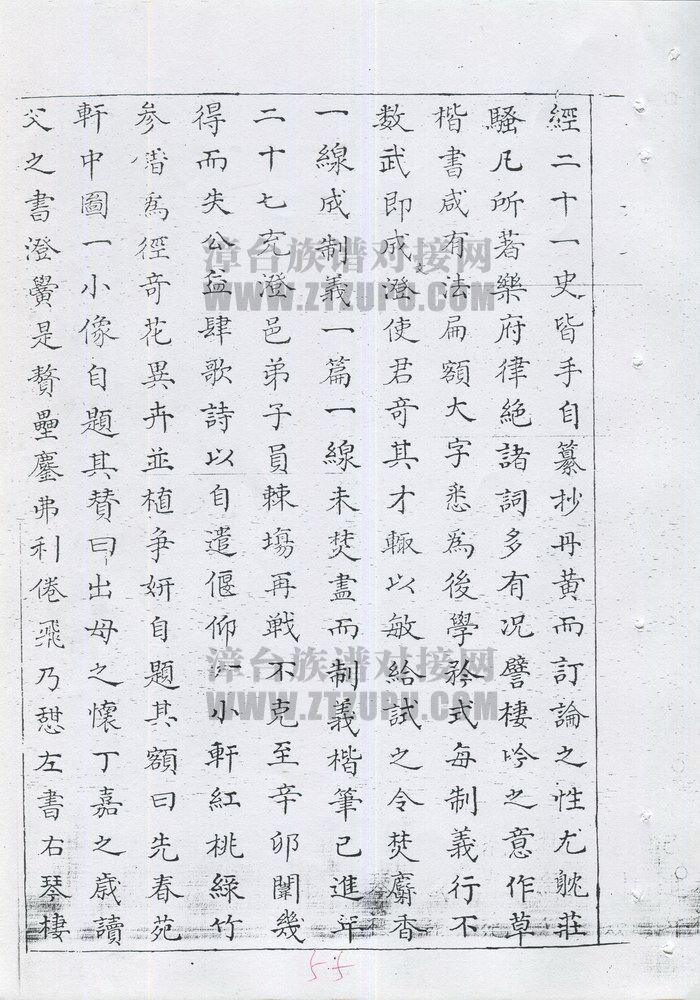 經二十一史皆手自纂抄丹黃而訂論之性尤躭莊
騷凡所著樂府律絕諸詞多有况譬棲吟之意作草
楷書咸有法扁額大字悉為後學矜式每制義行不
数武即成澄使君奇其才輙以敏給試之令焚麝香
一線成制義一篇一線未焚盡而制義楷筆已進年
二十七充澄邑弟子員棘塲再戦不克至辛卯闈幾
得而失公益肆歌詩以自遣偃仰一小軒紅桃綠竹
参熸為徑奇花異卉並植争妍自題其額曰先春苑
軒中圖一小像自題其賛曰出母之懷丁嘉之歲讀
父之書澄黌是贅壘鏖弗利倦飛乃憇左書右琴棲
漳台族谱对接网
WWW.ZTZUPU.COM
漳台族谱对接网
WWW.ZTZUPU.COM
55